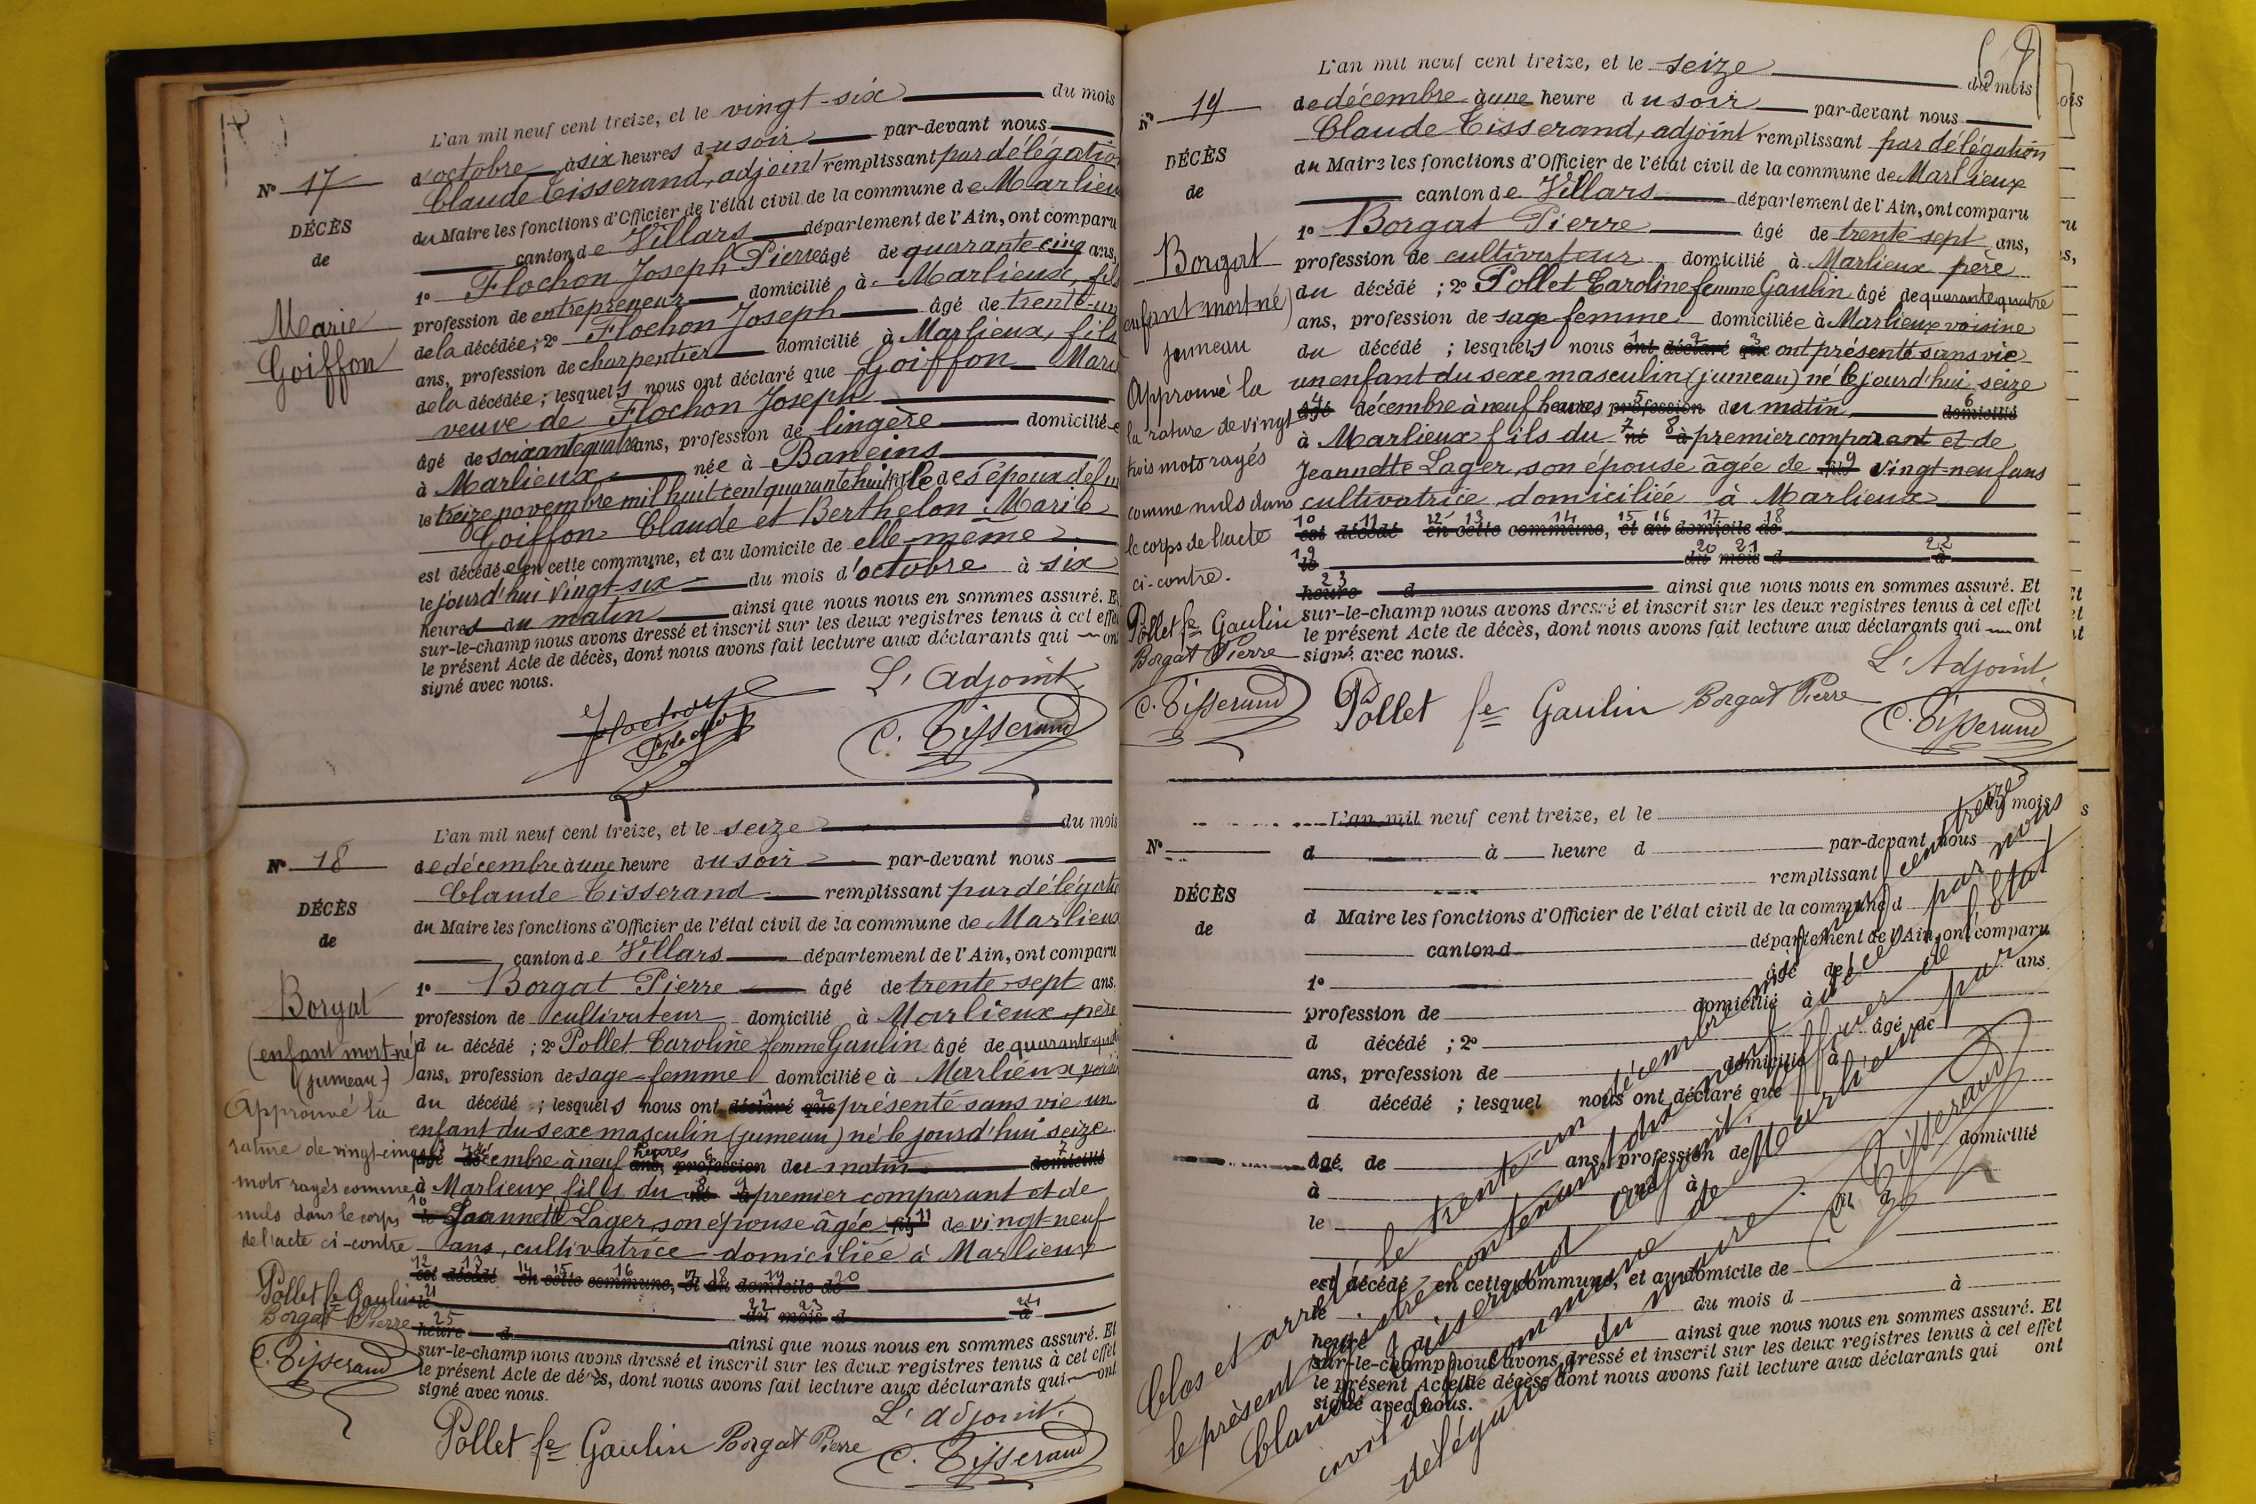 L'an mil neuf cent treize, et le vingt-six du mois
d'octobre à six heures du soir par-devant nous
Claude Tisserand, adjoint remplissant par délégation
du Maire les fonctions d'Officier de l'état civil de la commune de Marlieux
canton de Villars département de l'Ain, ont comparu
1° Flochon Joseph Pierre âgé de quarante cinq ans,
profession de entrepreneur domicilié à Marlieux, fils
de la décédée; 2° Flochon Joseph âgé de trente-un
ans, profession de charpentier domicilié à Marlieux, fils
de la décédée; lesquels nous ont déclaré que Goiffon Marie
veuve de Flochon Joseph
âgé de soixante quatre ans, profession de lingère domiciliée
à Marlieux née à Baneins
le treize novembre mil huit cent quarante huit fille des époux défunts
Goiffon Claude et Berthelon Marie
est décédée en cette commune, et au domicile de elle-même
le jourd'hui vingt-six du mois d'octobre à six
heures du matin ainsi que nous nous en sommes assuré. Et
sur-le-champ nous avons dressé et inscrit sur les deux registres tenus à cet effet
le présent Acte de décès, dont nous avons fait lecture aux déclarants qui ont
signé avec nous.
L'Adjoint,
Flochon
C. Tisserand
N° 17
DÉCÈS
de
Marie
Goiffon
L'an mil neuf cent treize, et le seize du mois
de décembre à une heure du soir par-devant nous
Claude Tisserand remplissant par délégation
du Maire les fonctions d'Officier de l'état civil de la commune de Marlieux
canton de Villars département de l'Ain, ont comparu
1° Borgat Pierre âgé de trente-sept ans.
profession de cultivateur domicilié à Marlieux père
du décédé ; 2° Pollet Caroline femme Gaulin âgé de quarante quatre
ans, profession de sage-femme domiciliée à Marlieux, voisine
du décédé ; lesquels nous ont déclaré 1 que 2 présenté sans vie un
enfant du sexe masculin (jumeau) né le jourd'hui seize
âgé 3 de 4 décembre à neuf heures ans, 5 profession 6 du matin domicilié 7
à Marlieux fils du né 8 à 9 premier comparant et de
le 10 Jeannette Lager, son épouse âgée fils 11 de vingt-neuf
ans, cultivatrice domiciliée à Marlieux
12 est 13 décédé 14 en 15 cette 16 commune, 17 et 18 au 19 domicile 20 de
21 le 22 du 23 mois d 24 à
25 heure d ainsi que nous nous en sommes assuré. Et
sur-le-champ nous avons dressé et inscrit sur les deux registres tenus à cet effet
le présent Acte de décès, dont nous avons fait lecture aux déclarants qui ont
signé avec nous.
L'Adjoint,
Pollet fe Gaulin Borgat Pierre C. Tisserand
N° 18
DÉCÈS
de
Borgat
(enfant mort-né)
(jumeau)
Approuvé la
rature de vingt-cinq
mots rayés comme
nuls dans le corps
de l'acte ci-contre
Pollet fe Gaulin
Borgat Pierre
C. Tisserand
L'an mil neuf cent treize, et le seize du mois
de décembre à une heure du soir par-devant nous
Claude Tisserand, adjoint remplissant par délégation
du Maire les fonctions d'Officier de l'état civil de la commune de Marlieux
canton de Villars département de l'Ain, ont comparu
1° Borgat Pierre âgé de trente sept ans,
profession de cultivateur domicilié à Marlieux père
du décédé ; 2° Pollet Caroline femme Gaulin âgé de quarante quatre
ans, profession de sage femme domiciliée à Marlieux voisine
du décédé ; lesquels nous 1 ont 2 déclaré 3 que ont présenté sans vie
un enfant du sexe masculin (jumeau) né le jourd'hui seize
4 âgé décembre à neuf heures 5 profession du matin 6 domicilié
à Marlieux fils du 7 né 8 à premier comparant et de
Jeannette Lager, son épouse âgée de 9 fils vingt-neuf ans
cultivatrice domiciliée à Marlieux
10 est 11 décédé 12 en 13 cette 14 commune, 15 et 16 au 17 domicile 18 de
19 le 20 du 21 mois d 22 à
23 heure d ainsi que nous nous en sommes assuré. Et
sur-le-champ nous avons dressé et inscrit sur les deux registres tenus à cet effet
le présent Acte de décès, dont nous avons fait lecture aux déclarants qui ont
signé avec nous.
L'Adjoint,
Pollet fe Gaulin Borgat Pierre C. Tisserand
N° 19
DÉCÈS
de
Borgat
(enfant mort né)
jumeau
Approuvé la
la rature de vingt
trois mots rayés
comme nuls dans
le corps de l'acte
ci-contre.
Pollet fe Gaulin
Borgat Pierre
C. Tisserand
L'an mil neuf cent treize, et le du mois
N° d à heure d par-devant nous
remplissant
DÉCÈS
de
d Maire les fonctions d'Officier de l'état civil de la commune d
canton d département de l'Ain, ont comparu
1° âgé de ans.
profession de domicilié à
d décédé ; 2° âgé de
ans, profession de domicilié à
d décédé ; lesquel nous ont déclaré que
âgé de ans, profession de domicilié
à né à
le
est décédé en cette commune, et au domicile de
le du mois d à
heure d ainsi que nous nous en sommes assuré. Et
sur-le-champ nous avons dressé et inscrit sur les deux registres tenus à cet effet
le présent Acte de décès, dont nous avons fait lecture aux déclarants qui ont
signé avec nous.
Clos et arrêté le trente-un décembre mil neuf cent treize
le présent registre contenant dix neuf décès par nous
Claude Tisserand adjoint, officier de l'Etat
civil de la commune de Marlieux par
délégation du maire.
C. Tisserand